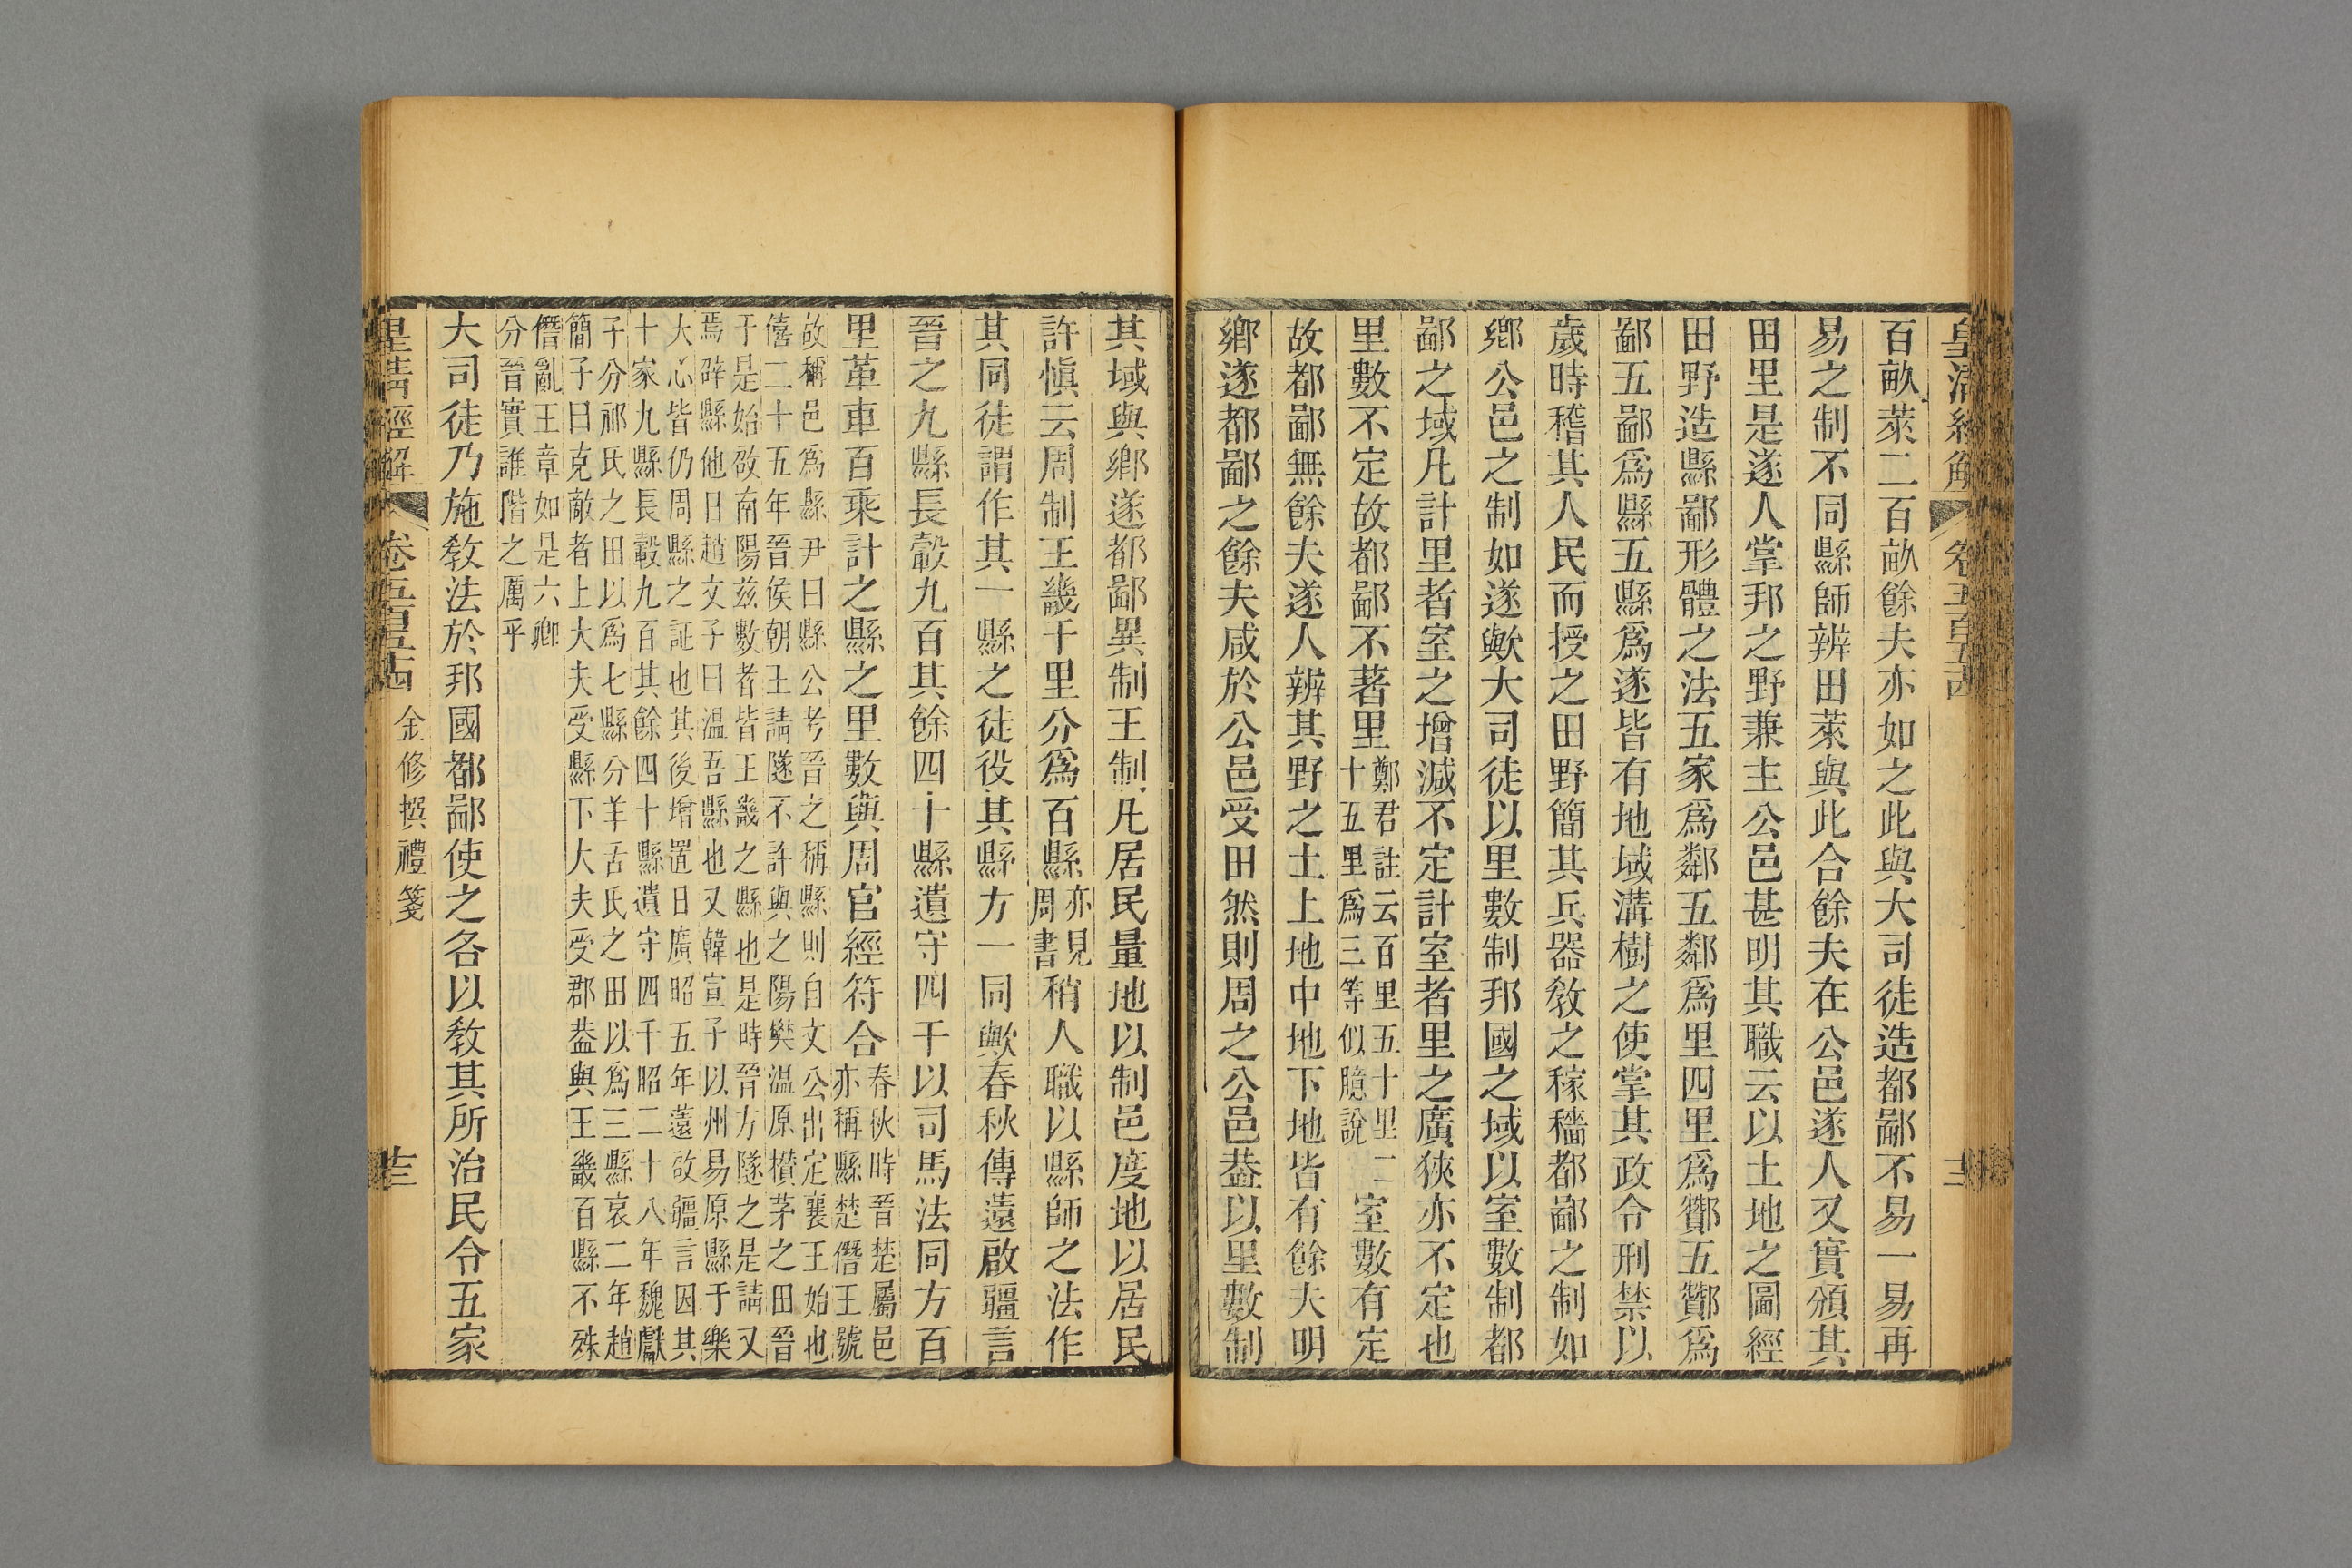 皇清經解 卷五百五十四 三
百畝萊二百畝餘夫亦如之此與大司徒造都鄙不易一易再
易之制不同縣師辨田萊與此合餘夫在公邑遂人又實頒其
田里是遂人掌邦之野兼主公邑甚明其職云以土地之圖經
田野造縣鄙形體之法五家爲鄰五鄰爲里四里爲酇五酇爲
鄙五鄙爲縣五縣爲遂皆有地域溝樹之使掌其政令刑禁以
歲時稽其人民而授之田野簡其兵器敎之稼穡都鄙之制如
鄉公邑之制如遂歟大司徒以里數制邦國之域以室數制都
鄙之域凡計里者室之增減不定計室者里之廣狹亦不定也
里數不定故都鄙不著里鄭君註云百里五十里二十五里爲三等似臆說室數有定
故都鄙無餘夫遂人辨其野之土上地中地下地皆有餘夫明
鄉遂都鄙之餘夫咸於公邑受田然則周之公邑葢以里數制
其域與鄉遂都鄙異制王制凡居民量地以制邑度地以居民
許愼云周制王畿千里分爲百縣亦見周書稍人職以縣師之法作
其同徒謂作其一縣之徒役其縣方一同歟春秋傳薳啟疆言
晉之九縣長轂九百其餘四十縣遺守四千以司馬法同方百
里革車百乘計之縣之里數與周官經符合春秋時晉楚屬邑亦稱縣楚僭王號
故稱邑爲縣尹曰縣公考晉之稱縣則自文公出定襄王始也
僖二十五年晉侯朝王請隧不許與之陽樊温原欑茅之田晉
于是始啟南陽兹數者皆王畿之縣也是時晉方隧之是請又
焉辟縣他日趙文子曰温吾縣也又韓宣子以州易原縣于樂
大心皆仍周縣之証也其後增置日廣昭五年薳啟疆言因其
十家九縣長轂九百其餘四十縣遺守四千昭二十八年魏獻
子分祁氏之田以爲七縣分羊舌氏之田以爲三縣哀二年趙
簡子曰克敵者上大夫受縣下大夫受郡葢與王畿百縣不殊
僭亂王章如是六卿
分晉實誰階之厲乎
大司徒乃施敎法於邦國都鄙使之各以敎其所治民令五家
皇清經解 卷五百五十四 金修撰禮箋